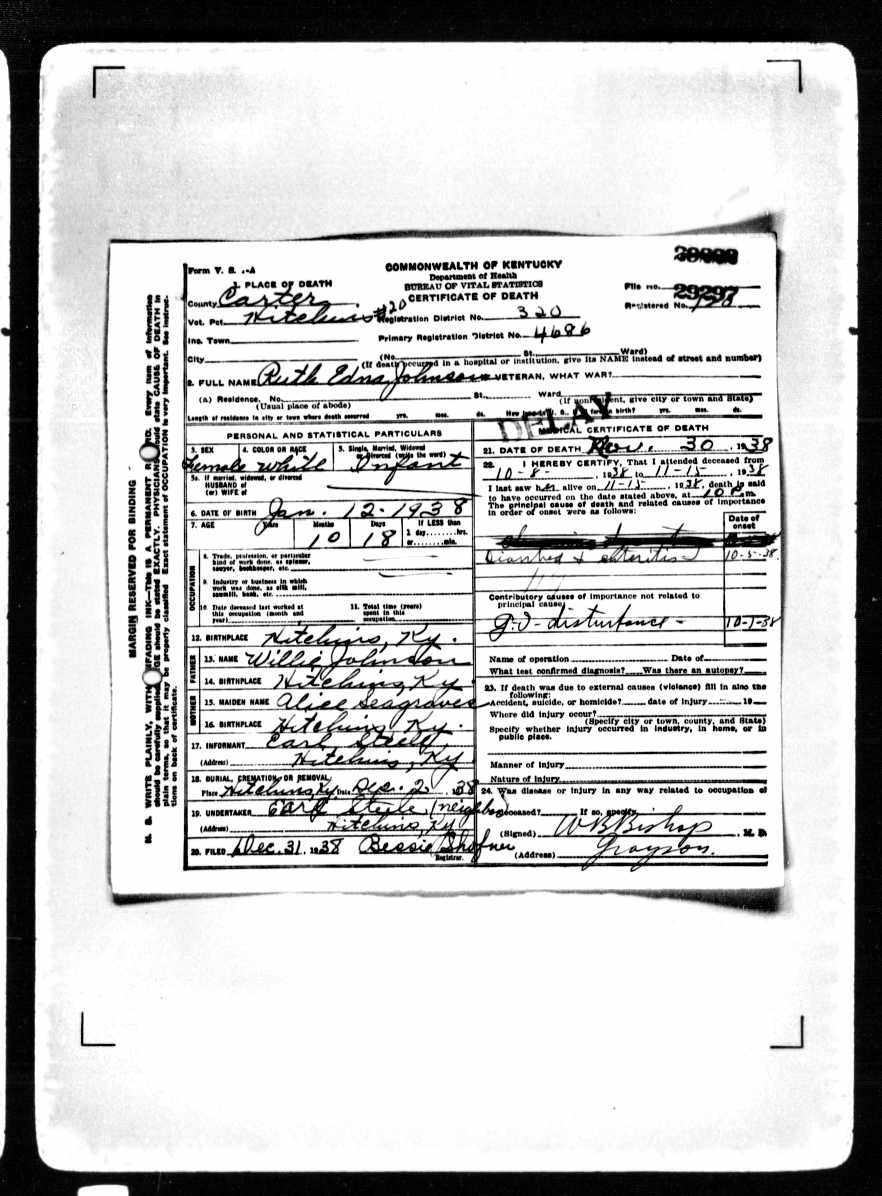 Form V. S. .-A
COMMONWEALTH OF KENTUCKY
Department of Health
BUREAU OF VITAL STATISTICS
CERTIFICATE OF DEATH
1. PLACE OF DEATH
County Carter
File no. 29297
Registered No.
Vot. Pct. Hitchins #20
Registration District No. 320
Ino. Town
Primary Registration District No. 4686
City (No. St. Ward)
(If death occurred in a hospital or institution, give its NAME instead of street and number)
2. FULL NAME Ruth Edna Johnson VETERAN, WHAT WAR?
(a) Residence. No. St. Ward.
(Usual place of abode) (If nonresident, give city or town and State)
Length of residence in city or town where death occurred yrs. mos. ds. How long in U. S., if of foreign birth? yrs. mos. ds.
DELAY
PERSONAL AND STATISTICAL PARTICULARS
3. SEX 4. COLOR OR RACE 5. Single, Married, Widowed
or Divorced (write the word)
Female White Infant
5a. If married, widowed, or divorced
HUSBAND of
(or) WIFE of
6. DATE OF BIRTH Jan. 12-1938
7. AGE Years Months Days If LESS than
1 day, hrs.
or min.
10 18
OCCUPATION
8. Trade, profession, or particular
kind of work done, as spinner,
sawyer, bookkeeper, etc.
9. Industry or business in which
work was done, as silk mill,
sawmill, bank, etc.
10. Date deceased last worked at
this occupation (month and
year)
11. Total time (years)
spent in this
occupation
12. BIRTHPLACE Hitchins, Ky.
FATHER
13. NAME Willie Johnson
14. BIRTHPLACE Hitchins, Ky
MOTHER
15. MAIDEN NAME Alice Seagraves
16. BIRTHPLACE Hitchins Ky.
17. INFORMANT Earl Steele,
(Address) Hitchins, Ky
18. BURIAL, CREMATION OR REMOVAL
Place Hitchins, Ky Date Dec. 2, 38
19. UNDERTAKER Earl Steele (neighbor)
(Address) Hitchins, Ky
20. FILED Dec. 31, 1938 Bessie
Registrar.
MEDICAL CERTIFICATE OF DEATH
21. DATE OF DEATH Nov. 30, 1938
22. I HEREBY CERTIFY, That I attended deceased from
10-8-, 1938 to 11-15, 1938
I last saw her alive on 11-15, 1938, death is said
to have occurred on the date stated above, at 10 P.m.
The principal cause of death and related causes of importance
in order of onset were as follows:
Date of
onset
Diarrhea & enteritis 10-5-38
Contributory causes of importance not related to
principal cause:
G.I-disturbance- 10-1-38
Name of operation Date of
What test confirmed diagnosis? Was there an autopsy?
23. If death was due to external causes (violence) fill in also the
following:
Accident, suicide, or homicide? date of injury 19
Where did injury occur?
(Specify city or town, county, and State)
Specify whether injury occurred in industry, in home, or in
public place.
Manner of injury
Nature of injury
24. Was disease or injury in any way related to occupation of
deceased? If so, specify
(Signed) W B Bishop, M. D.
(Address) Grayson.
MARGIN RESERVED FOR BINDING
N. B. WRITE PLAINLY, WITH UNFADING INK—THIS IS A PERMANENT RECORD. Every item of information
should be carefully supplied. AGE should be stated EXACTLY. PHYSICIANS should state CAUSE OF DEATH in
plain terms, so that it may be properly classified. Exact statement of OCCUPATION is very important. See instruc-
tions on back of certificate.